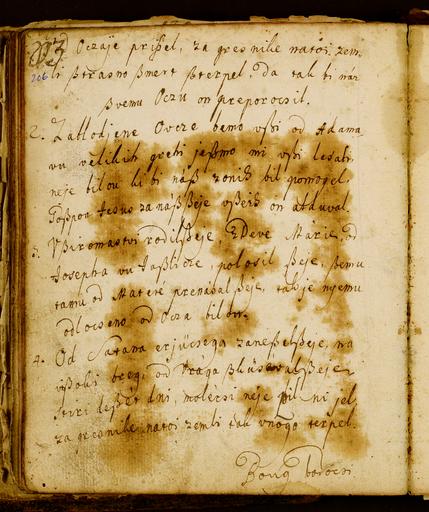 Oczaje prißel, za gresnike natoi zem-
li ßtrasno ßmert ßterpel, da tak bi nas
ßvemu Oczu on preporocsil.
206
2. Zablodjene Ovcze beßmo vßi od Adama
vu velikih grehi jeßmo mi vßi lesali,
neje bilou ki bi naß zonih bil pomogel,
Jesus za naß ßeje vßeih on alduval.
3. Vßiromastvi rodil ßeje, z Deve Marie, od
Josepha vu Jaßlicze, polosil ßeje, ßemu
tamu od Matere prenasal ßeje, tak je nyemu
odlocseno od Ocza bilou.
4. Od Satana ßeje, na
vißoki breg, od vraga ßkusaval ßeje
stiri deßet dni, molecsi neje pil ni jel,
za gresnike natoi zemli tak vnogo terpel.
Boug